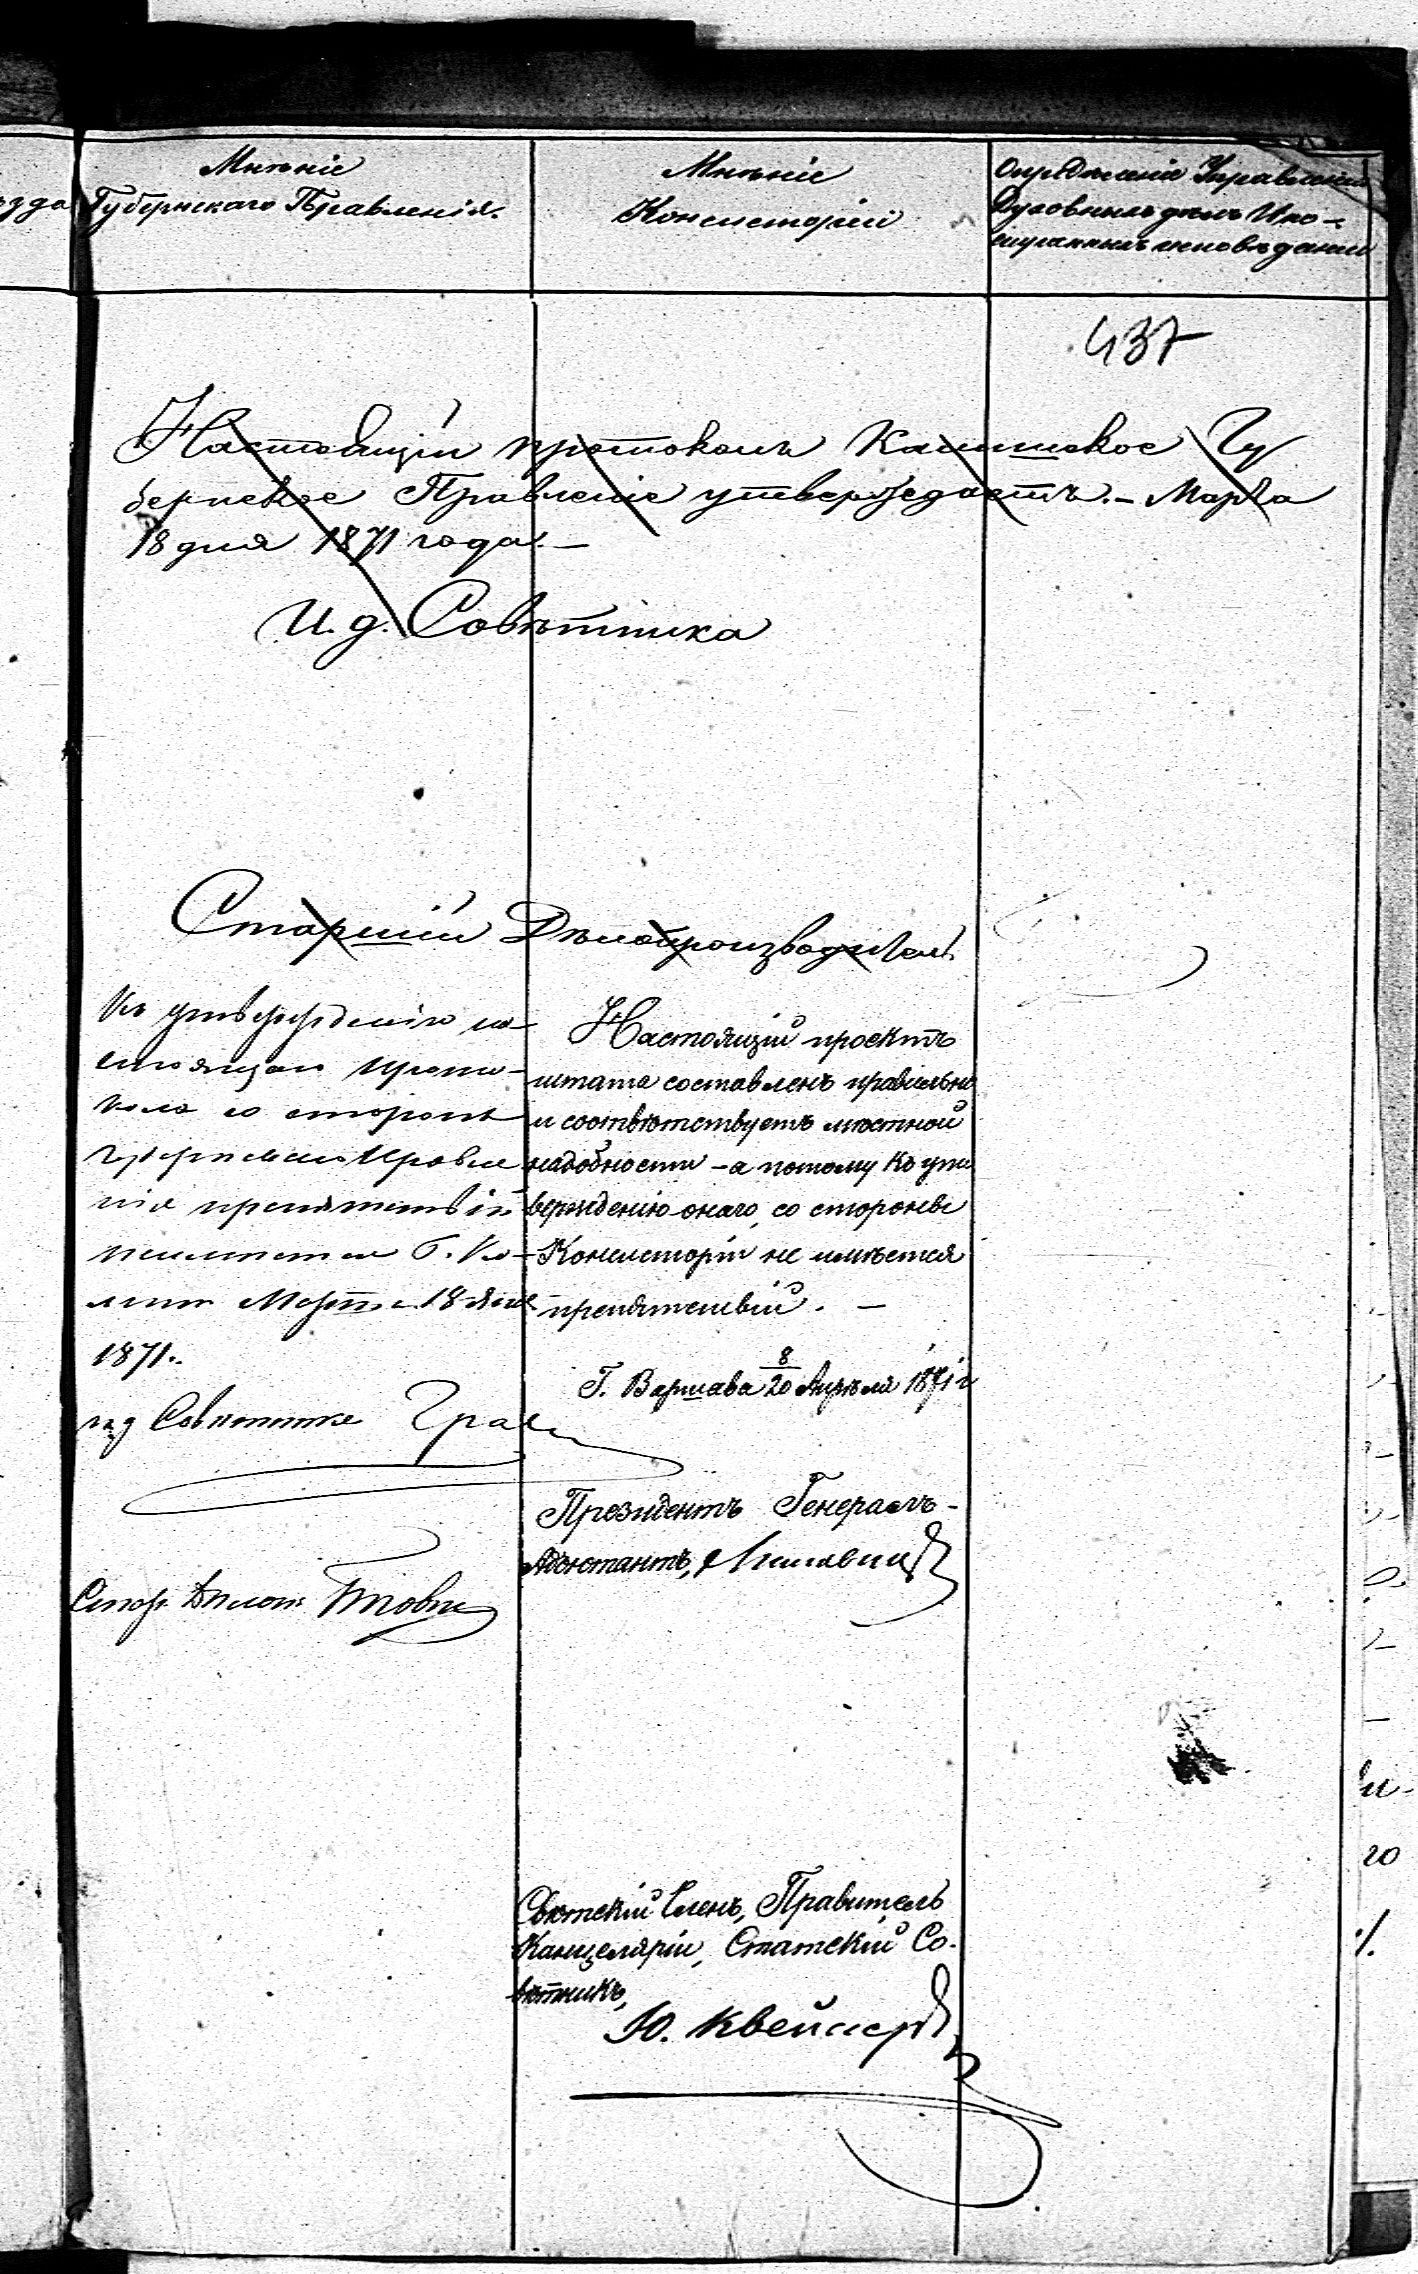 Мнѣніе
Губернскаго Правленія.
Мнѣніе
Консисторіи
Опредѣленіе Управленія
Духовныхъ дѣлъ Ино-
странныхъ исповѣданій
ѣзда
437
Настоящій протоколъ Калишское Гу
бернское Правленіе утверждаетъ. – Марта
18 дня 1871 года. –
И. д. Совѣтника
Старшій Дѣлопроизводитель
Къ утвержденію на-
стоящаго прото-
кола со стороны
Губернскаго Правле
нія препятствій
не имѣется Г. Ка-
лишъ Марта 18 дня
1871.
и д Совѣтника
Старш. Дѣлопр.
Настоящій проектъ
штата составленъ правильно
и соотвѣтствуетъ мѣстной
надобности – а потому къ ут
вержденію онаго, со стороны
Консисторіи не имѣется
препятствій. –
Г. Варшава 8/20 Апрѣля 1871 г
Президентъ Генералъ-
Адъютантъ,
Свѣтскій Членъ, Правитель
Канцеляріи, Статскій Со-
вѣтникъ,
Ю.
го